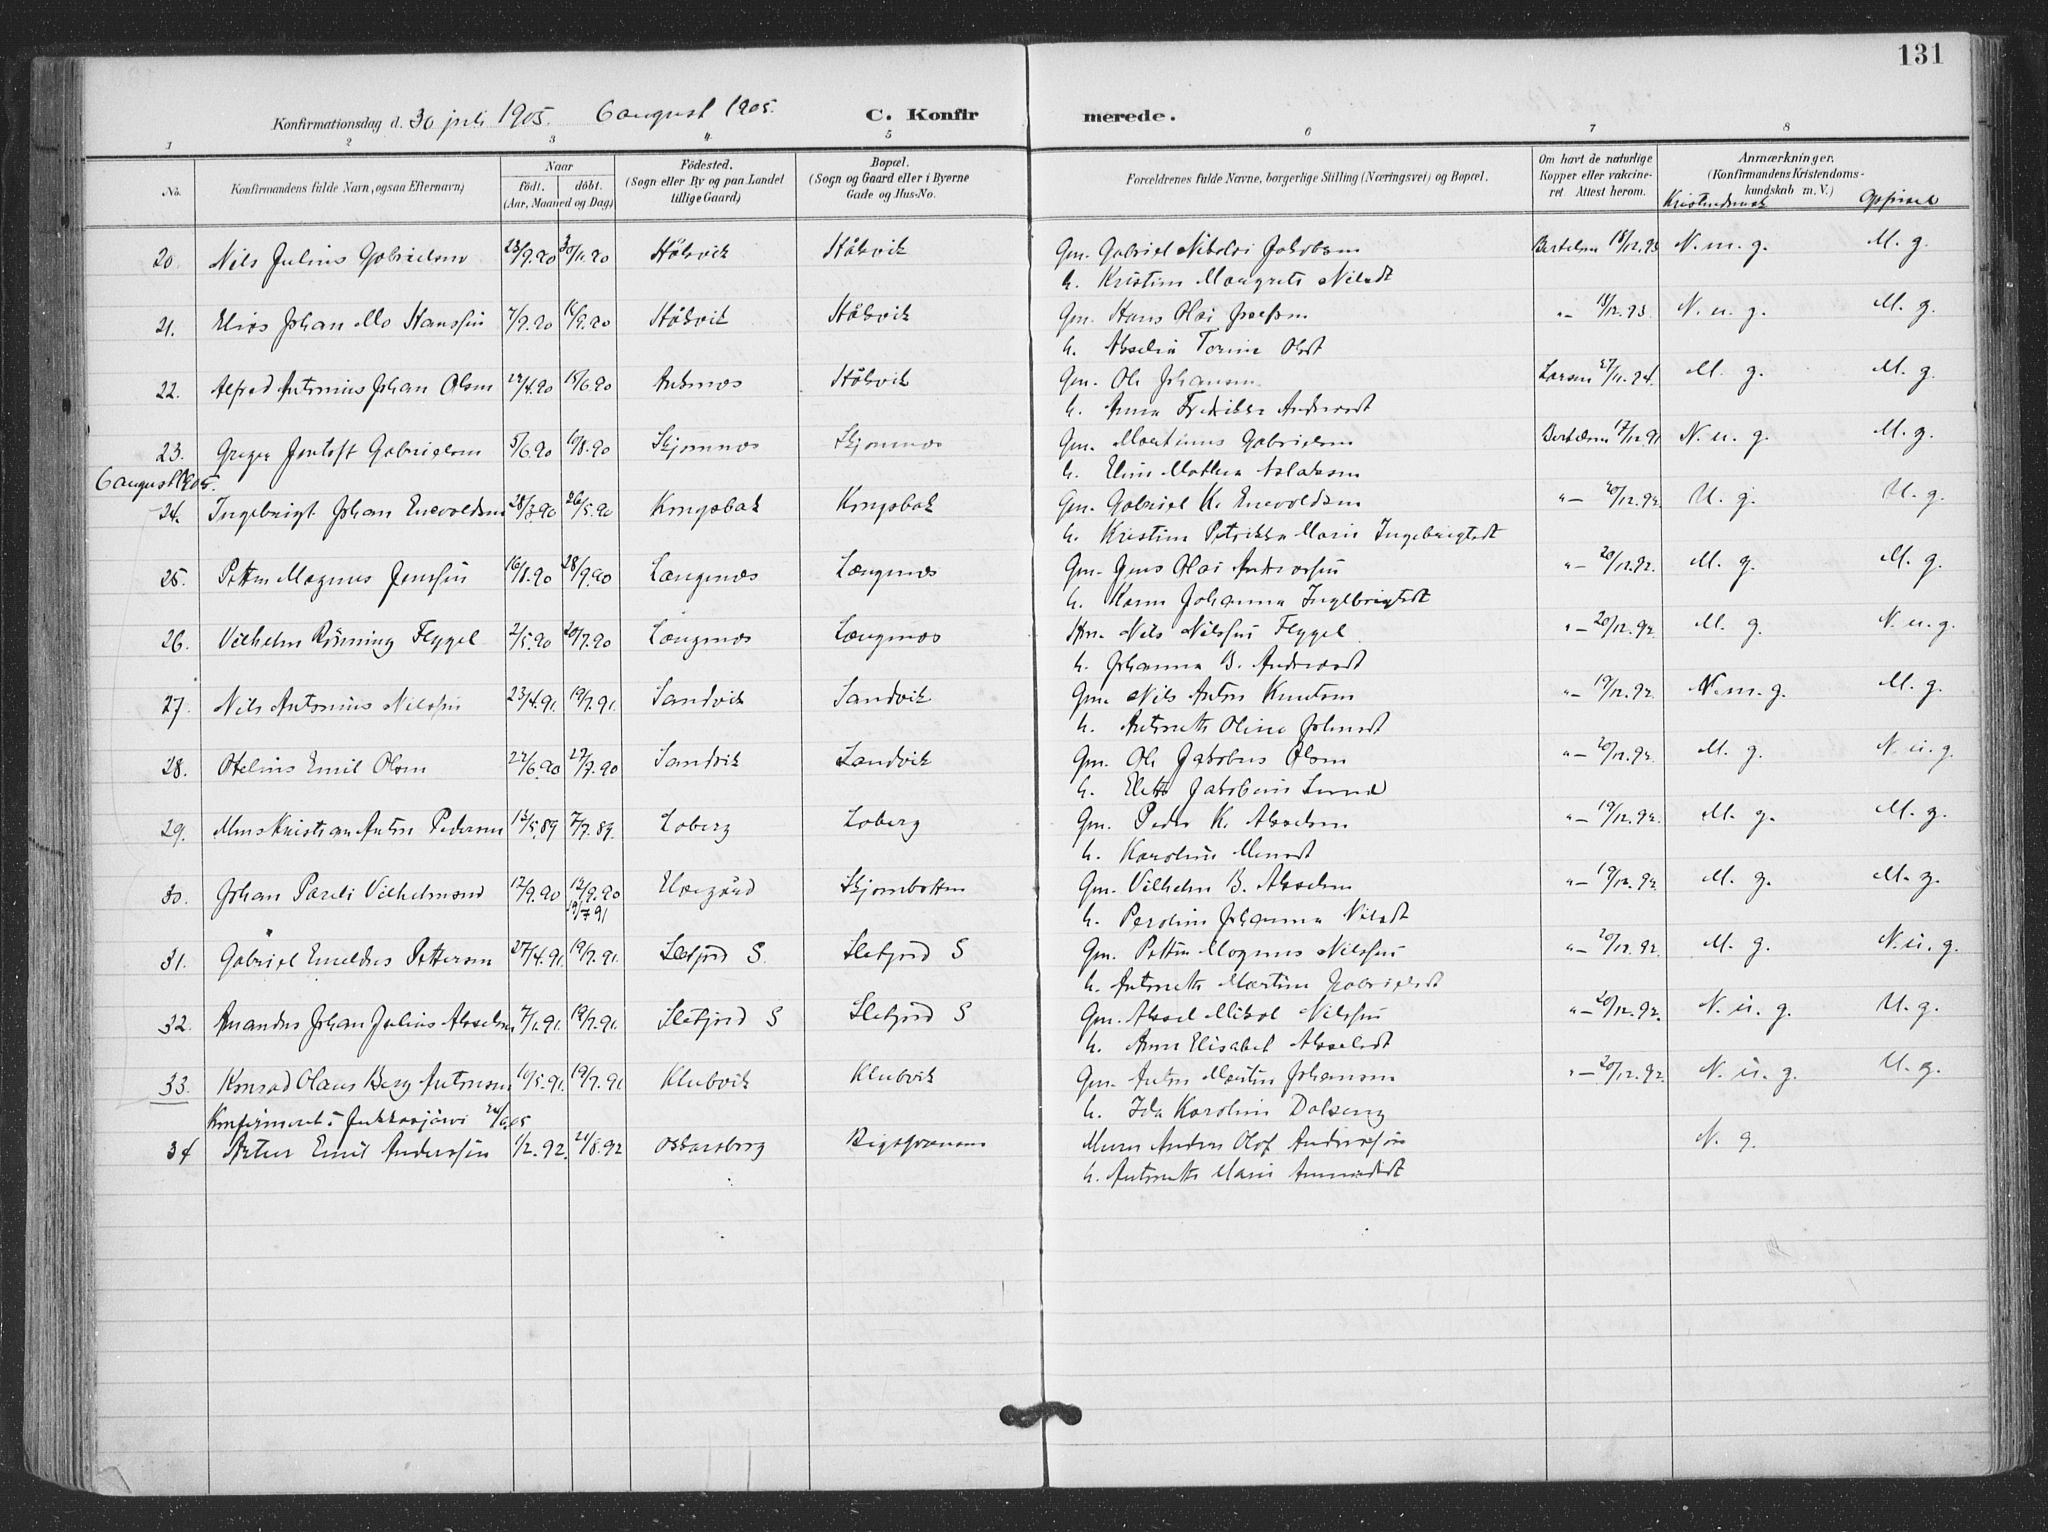 131
Konfirmationsdag d. 30 juli 1905. 6 august 1905. C. Konfirmerede.
1 2 3 4 5 6 7 8
No. Konfirmandens fulde Navn, ogsaa Efternavn) Naar födt. döbt. (Aar, Maaned og Dag) Födested. (Sogn eller By og paa Landet tillige Gaard) Bopæl. (Sogn og Gaard eller i Byerne Gade og Hus-No. Forældrenes fulde Navne, borgerlige Stilling (Næringsvei) og Bopæl. Om havt de naturlige Kopper eller vakcineret Attest herom. Anmærkninger. (Konfirmandens Kristendomskundskab m. V.) Kristendomsk Opförsel
20. Nils Julius Gabrielsen 23/9.90 30/11.90 Håkvik Håkvik Gm. Gabriel Nikolai Jakobsen Bertelsen 18/12.93 N. m. g. M. g.
h. Kristine Margrete Nilsdt
21. Elias Johan Mo Hanssen 7/9.90 16/9.90 Håkvik Håkvik Gm. Hans Olai " – 18/12.93. N. u. g. M. g.
h. Torine Olsdt
22. Alfred Antonius Johan Olsen 15/6.90 Ankenæs Håkvik Gm. Ole Johansen Larsen 27/11.94. M. g. M. g.
h. Anna Fredrikke Andersdt
23. Greger Jentoft Gabrielsen 5/6.90 10/8.90 Skjomnæs Skjomnæs Gm. Martinus Gabrielsen Bertelsen 17/12.91 N. u. g. M. g.
h. Elen Mathea Aslaksen
6 august 1905.
24. Ingebrigt Johan Enevoldsen 28/3.90 26/5.90 Kongsbak Kongsbak Gm. Gabriel K. Enevoldsen " – 20/12.92. U. g. U. g.
h. Kristine Petrikke Marie Ingebrigtsdt
25. Petter Magnus Jenssen 16/8.90 28/9.90 Langnæs Langnæs Gm. Jens Olai Anderssen " – 20/12.92. M. g. M. g.
h. Karen Johanna Ingebrigtsdt
26. Vilhelm Rönning Flygel 2/5.90 20/7.90 Langnæs Langnæs Nils Nilssen Flygel " – 20/12.92. M. g. N. u. g.
h. Johanna B. Andersdt
27. Nils Antonius Nilssen 23/4.91. 19/7.91. Sandvik Sandvik Gm. Nils Anton Knutsen " – 19/12.92. N. m. g. M. g.
h. Antonette Oline Johnsdt
28. Otelius Emil Olsen 22/6.90 27/7.90 Sandvik Sandvik Gm. Ole Jakobus Olsen " – 20/12.92. M. g. N. u. g.
h. Elette Jakobine Lund
29. Mons Kristian Anton Pedersen 12/5.89 7/7.89. Loberg Loberg Gm. Peder K. Akselsen " – 19/12.92. M. g. M. g.
h. Karoline Monsdt
30. Johan Pareli Vilhelmsen 12/9.90 12/9.90 Elvegård Skjombotten Gm. Vilhelm B. Akselsen " – 19/12.92. M. g. M. g.
19/7 91 h. Peroline Johanna Nilsdt
31. Gabriel Eneldus Pettersen 27/4.91. 19/7.91. Sletjord S. Sletjord S Gm. Petter Magnus Nilssen " – 20/12.92. M. g. N. u. g.
h. Antonette Martine Gabrielsdt
32. Amandus Johan Julius Akselsen 7/1.91. 19/7.91. Sletjord S Sletjord S Gm. Aksel Mikal Nilssen " – 20/12.92. N. u. g. U. g.
h. Anne Elisabet Akselsdt
33. Konrad Olaus Berg Antonsen 10/5.91. 19/7.91 Klubvik Klubvik Gm. Anton Martin Johansen " – 20/12.92. N. u. g. U. g.
Konfirmeret i Jukkasjärvi h. Ida Karoline Dalseng
34 Artur Emil Anderssen 1/2.92. 21/8.92 Oskarsborg Rigsgrænsen Murer Anders Olof Anderssen N. g.
h. Antonette Marie Amundsdt